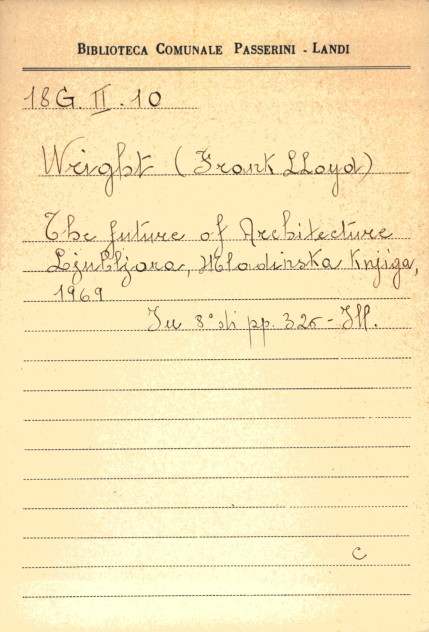 BIBLIOTECA COMUNALE PASSERINI - LANDI
18G. II. 10
Wright (Frank LLoyd)
The future of Architecture
Ljubljara, Mladinska Knjiga,
1969
In 8° di pp. 326 - Ill.
C